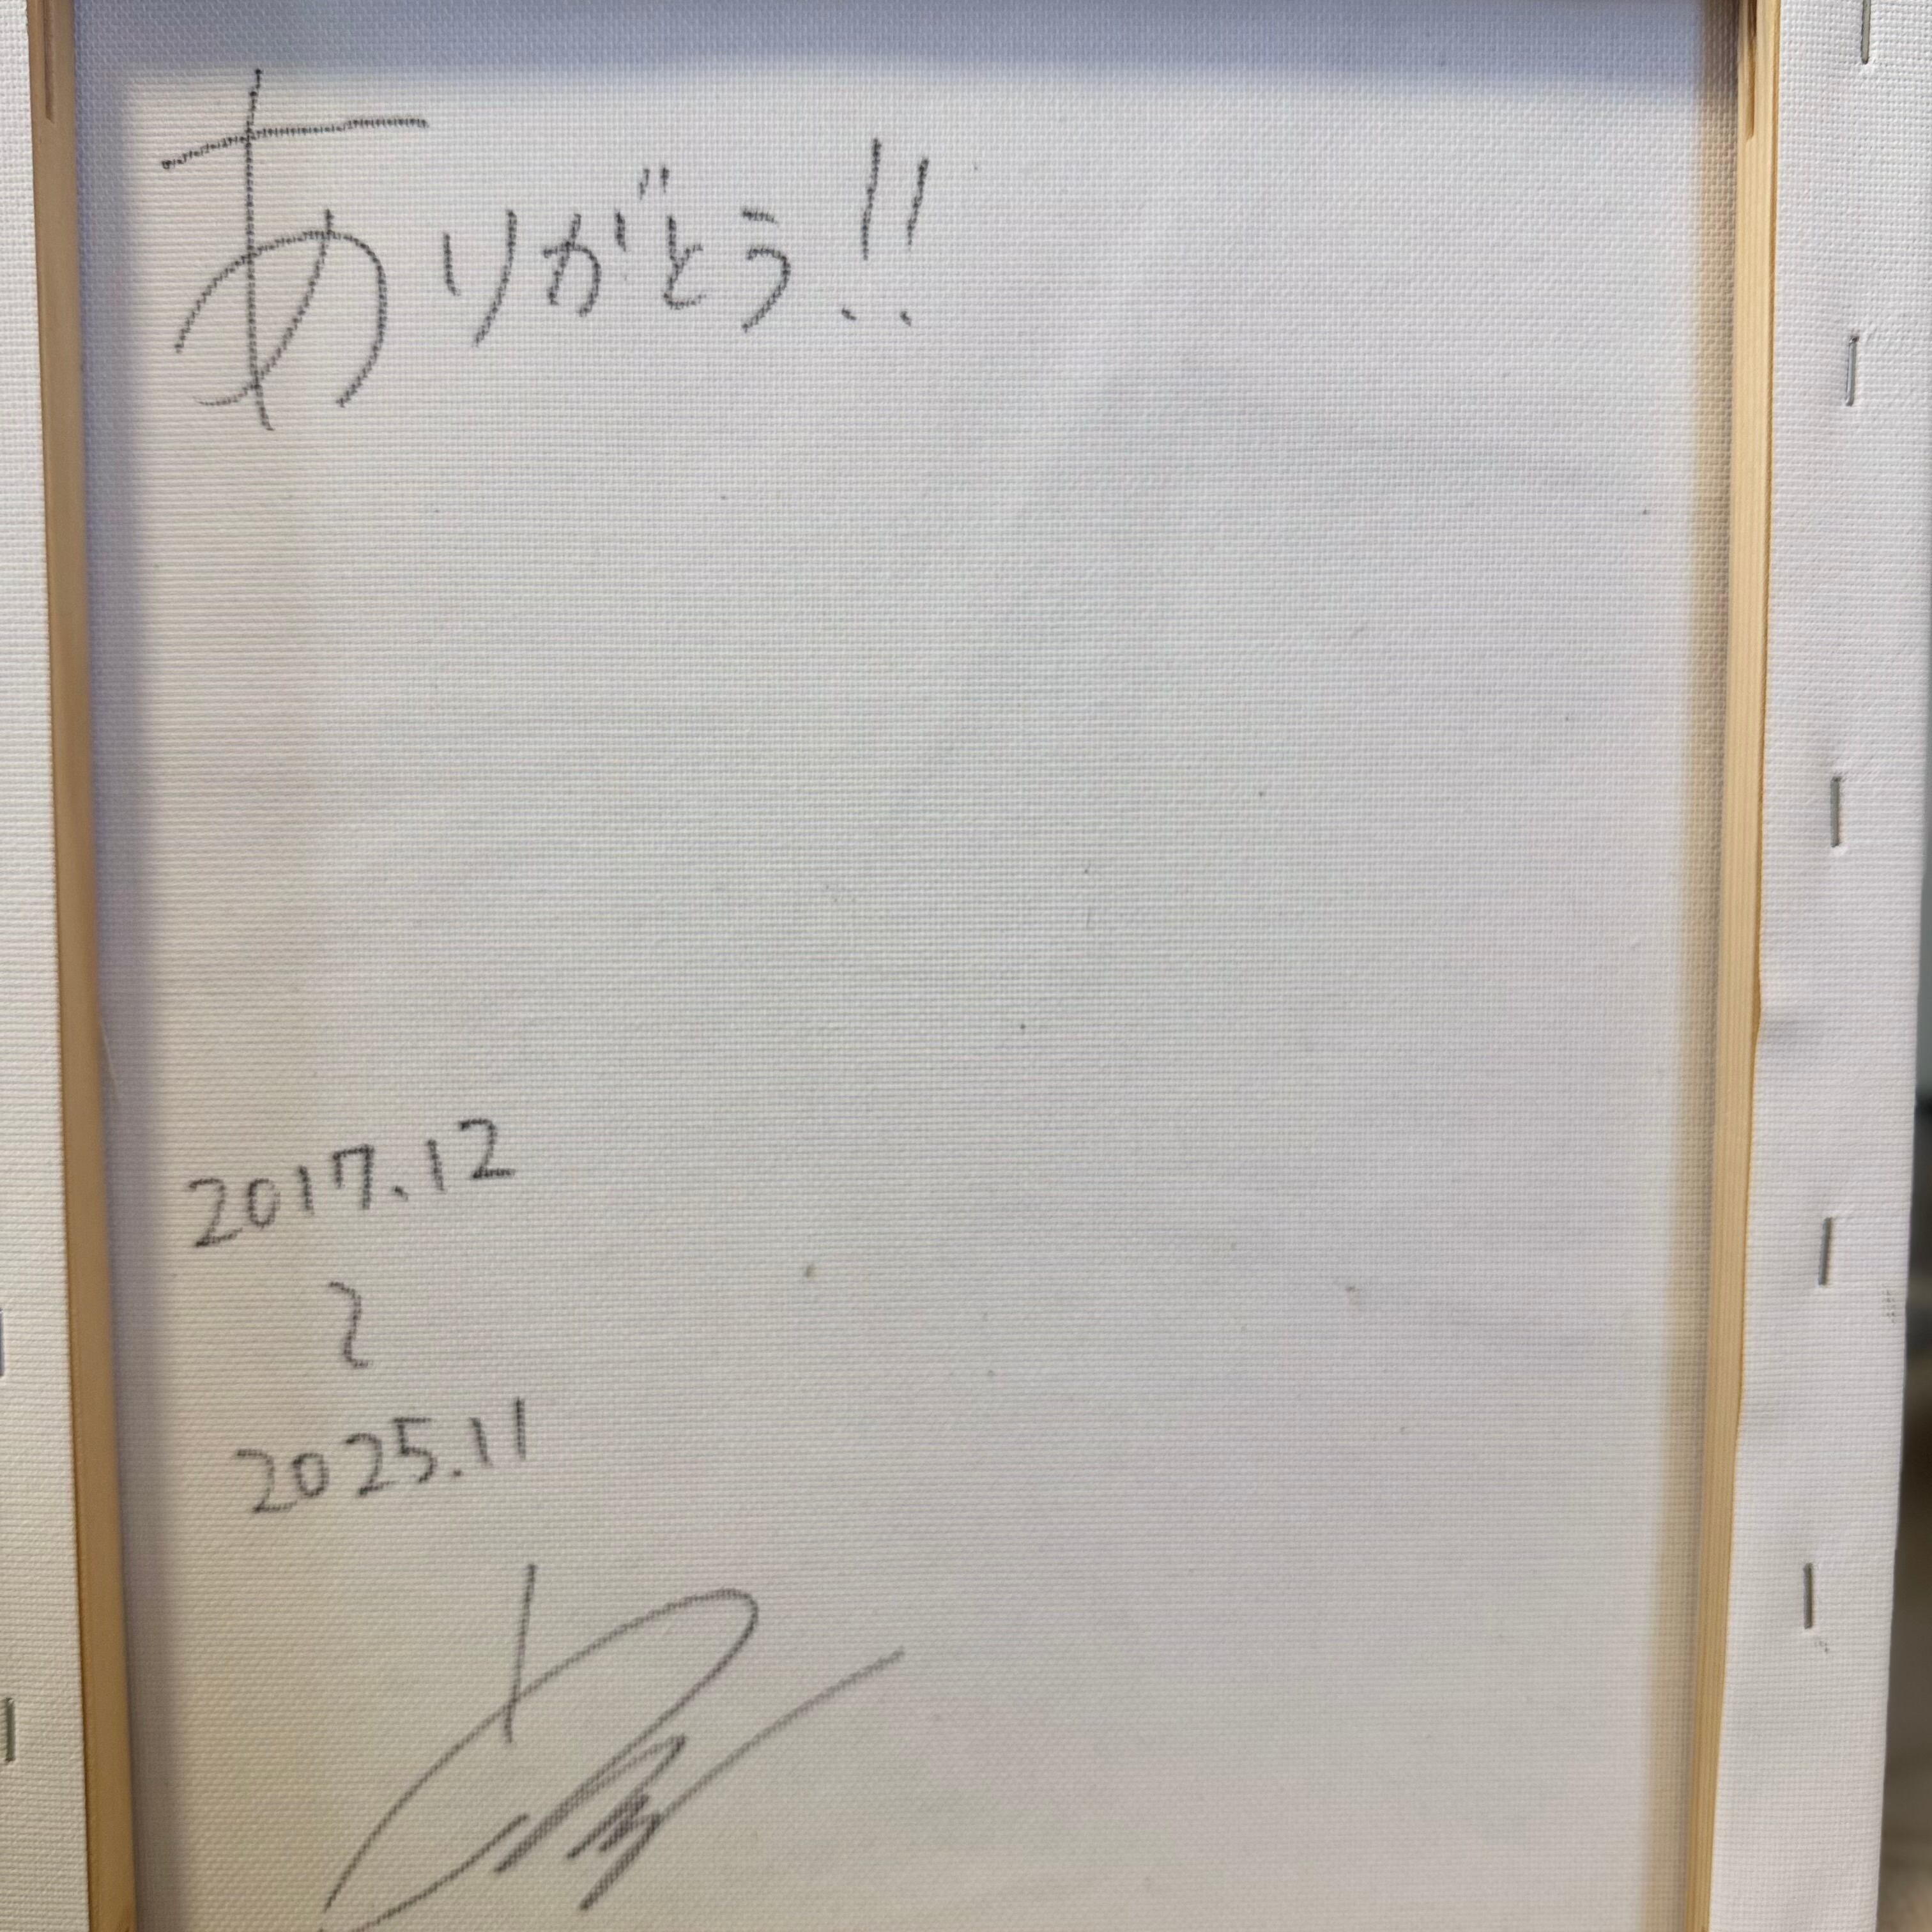 ありがとう!!
2017.12
〜
2025.11